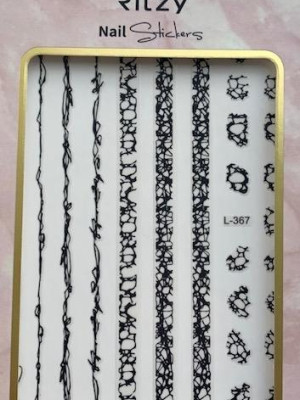 Ritzy
Nail Stickers
L-367